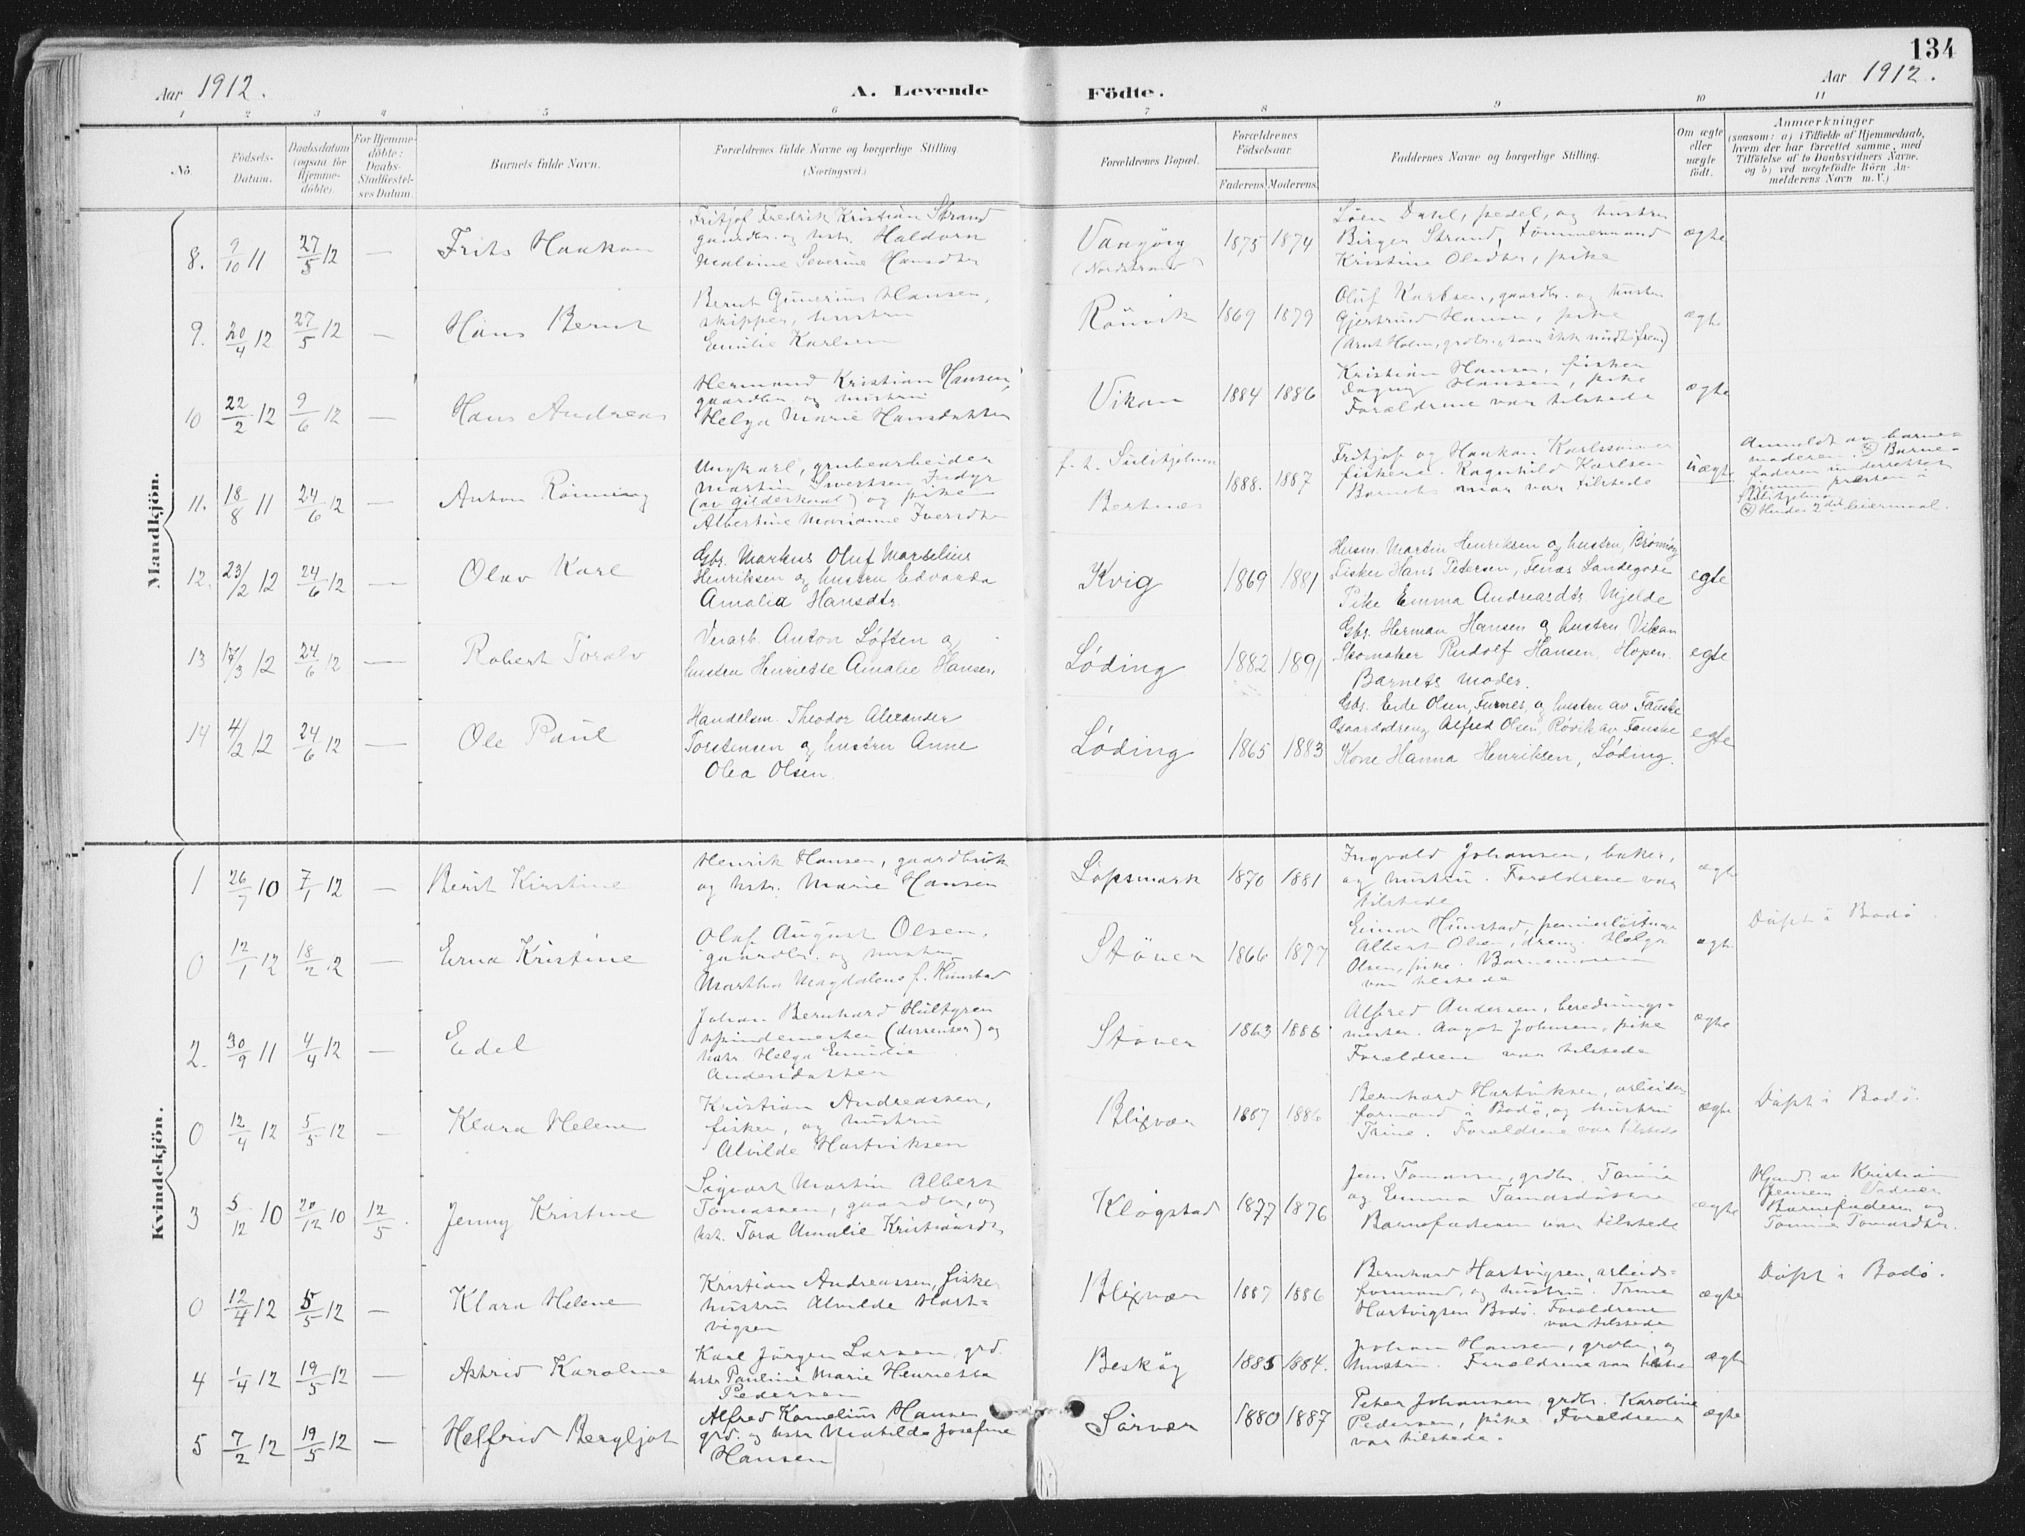 134
Aar 1912.
A. Levende
Födte.
Aar 1912.
1 2 3 4 5 6 7 8 9 10 11
No.
Födsels-
Datum.
Daabsdatum
(ogsaa for
Hjemme-
döbte).
For Hjemme-
döbte:
Daabs-
Stadfæstel-
ses Datum.
Barnets fulde Navn.
Forældrenes fulde Navne og borgerlige Stilling
(Næringsvei.)
Forældrenes Bopæl.
Forældrenes
Födselsaar.
Faderens. Moderens.
Faddernes Navne og borgerlige Stilling.
Om ægte
eller
uægte
födt.
Anmærkninger
(saasom: a) i Tilfælde af Hjemmedaab,
hvem der har forrettet samme, med
Tilföielse af to Daabsvidners Navne.
og b) ved uægtefödte Börn An-
melderens Navn m. V.)
Mandkjön.
8. 9/10 11 27/5 12 — Frits Haakon
Fritjof Fredrik Kristian Strand
gaardbr. og hstr. Haldora
Malvine Severine Hansdtr
(Nordstrand)
1875 1874
Sören Dahl, pedel, og hustru
Birger Strand, tömmermand
Kristine Olsdtr, pike
ægte
9. 20/4 12 27/5 12 — Hans Bernt
Bernt Gunerius Hansen,
skipper, hustru
Emilie Karlsen
Rönvik
1869 1879
Oluf Karlsen, gaardbr. og hustru
Gjertrud Hansen, pike
ægte
10 22/2 12 9/6 12 — Hans Andreas
Hermand Kristian Hansen,
gaardbr. og hustru
Helga Marie Hansdatter
Vikan
1884 1886
Kristian Hansen, fisker
Dagny Hansen, pike
Forældrene var tilstede
ægte
11. 18/8 11 24/6 12 — Anton Rönning
Ungkarl, grubearbeider
Martin Sivertsen Indyr
(av Gildeskaal) og pike
Albertine Marianne Iversdtr
f. t. Sulitjelma
Bertnes
1888. 1887
Fritjof og Haakon Karlsönner
fiskere. Ragnhild Karlsen
Barnets mor var tilstede
uægte
Anmeldt av barne-
moderen. Barne-
faderen underrettet
gjennem presten i
Sulitjelma
Hendes 2det leiermaal.
12. 23/2 12 24/6 12 — Olav Karl
Gbr. Markus Oluf Marselius
Henriksen og hustru Edvarda
Amalia Hansdtr.
Kvig
1869 1881
Husm. Martin Henriksen og hustru, Brömøy
Fisker Hans Petersen, Fenes Landegode
Pike Emma Andreasdtr. Mjelde
egte
13 17/3 12 24/6 12 — Robert Toralv
Verarb. Anton Løften og
hustru Henriette Amalie Hansen.
Løding
1882 1891
Gbr. Herman Hansen og hustru Vikan
Skomaker Rudolf Hansen, Hopen.
Barnets Moder.
egte
14 4/2 12 24/6 12 — Ole Paul
Handelsm. Theodor Alexander
Torstensen og hustru Anne
Olea Olsen.
Løding
1865 1883
Gbr. Erde Olsen, Furnes, og hustru av Fauske
Gaardsdreng Alfred Olsen, Røvik av Fauske
Kone Hanna Henriksen, Løding.
egte
Kvindekjön.
1 26/7 10 7/1 12 — Berit Kirstine
Henrik Hansen, gaardbruk
og hstr. Marie Hansen
Löpsmark
1870 1881
Ingvald Johansen, baker,
og hustru. Forældrene var
tilstede
ægte
0 12/1 12 18/2 12 Erna Kristine
Olaf August Olsen,
gaardbr. og hustru
Martha Magdalena f. Hunstad
Stöver
1866 1877
Einar Hunstad,
Albert Olsen, dreng. Helga
Olsen, pike. Barnemoren
var tilstede
ægte
Döpt i Bodö.
2. 30/9 11 4/4 12 — Edel
Johan Bernhard Hultgren
(dissenter) og
hstr Helga Emilie
Andersdatter
Stöver
1863 1886
Alfred Andersen, berednings-
mester. Aagot Johnsen, pike
Forældrene var tilstede
ægte
0 12/4 12 5/5 12 — Klara Helene
Kristian Andreassen,
fisker, og hustru
Alvilde Hartviksen
Blixvær
1887 1886
Bernhard Hartviksen, arbeider
formand i Bodö, og hustru
Trine. Forældrene var tilstede
ægte
Döpt i Bodö.
3 5/12 10 20/12 10 12/5. Jenny Kristine
Sigvart Martin Albert
Tomassen, gaardbr, og
hst. Tora Amalie Kristiansdtr
Klogstad
1877 1876
Jens Tomassen, grdbr.
og Emma Tomasdatter
Barnefaderen var tilstede
ægte
Hjmd. av Kristian
Jensen. Vidner
Barnefaderen og
Tomine Tomasdtr.
0 12/4 12 5/5 12 — Klara Helene
Kristian Andreassen, fisker
hustru Alvilde Hart-
vigsen
Blixvær
1887 1886
Bernhard Hartvigsen, arbeids-
formand, og hustru. Trine
Hartvigsen Bodö. Forældrene
var tilstede
ægte
Döpt i Bodö.
4 1/4 12 19/5 12 — Astrid Karoline
Karl Jörgen Larsen, grd.
hstr Pauline Marie Henriette
Pedersen
Beskög
1885 1884.
Johan Hansen, grdbr, og
hustru. Forældrene var tilstede
ægte
5 7/2 12 19/5 12 — Helfrid Bergljot
Alfred Kornelius Hansen
grd. og hstr Matilde Josefine
Hansen
Sörvær
1880 1887
Peter Johansen grdbr. Karoline
Pedersen, pike. Forældrene
var tilstede.
ægte